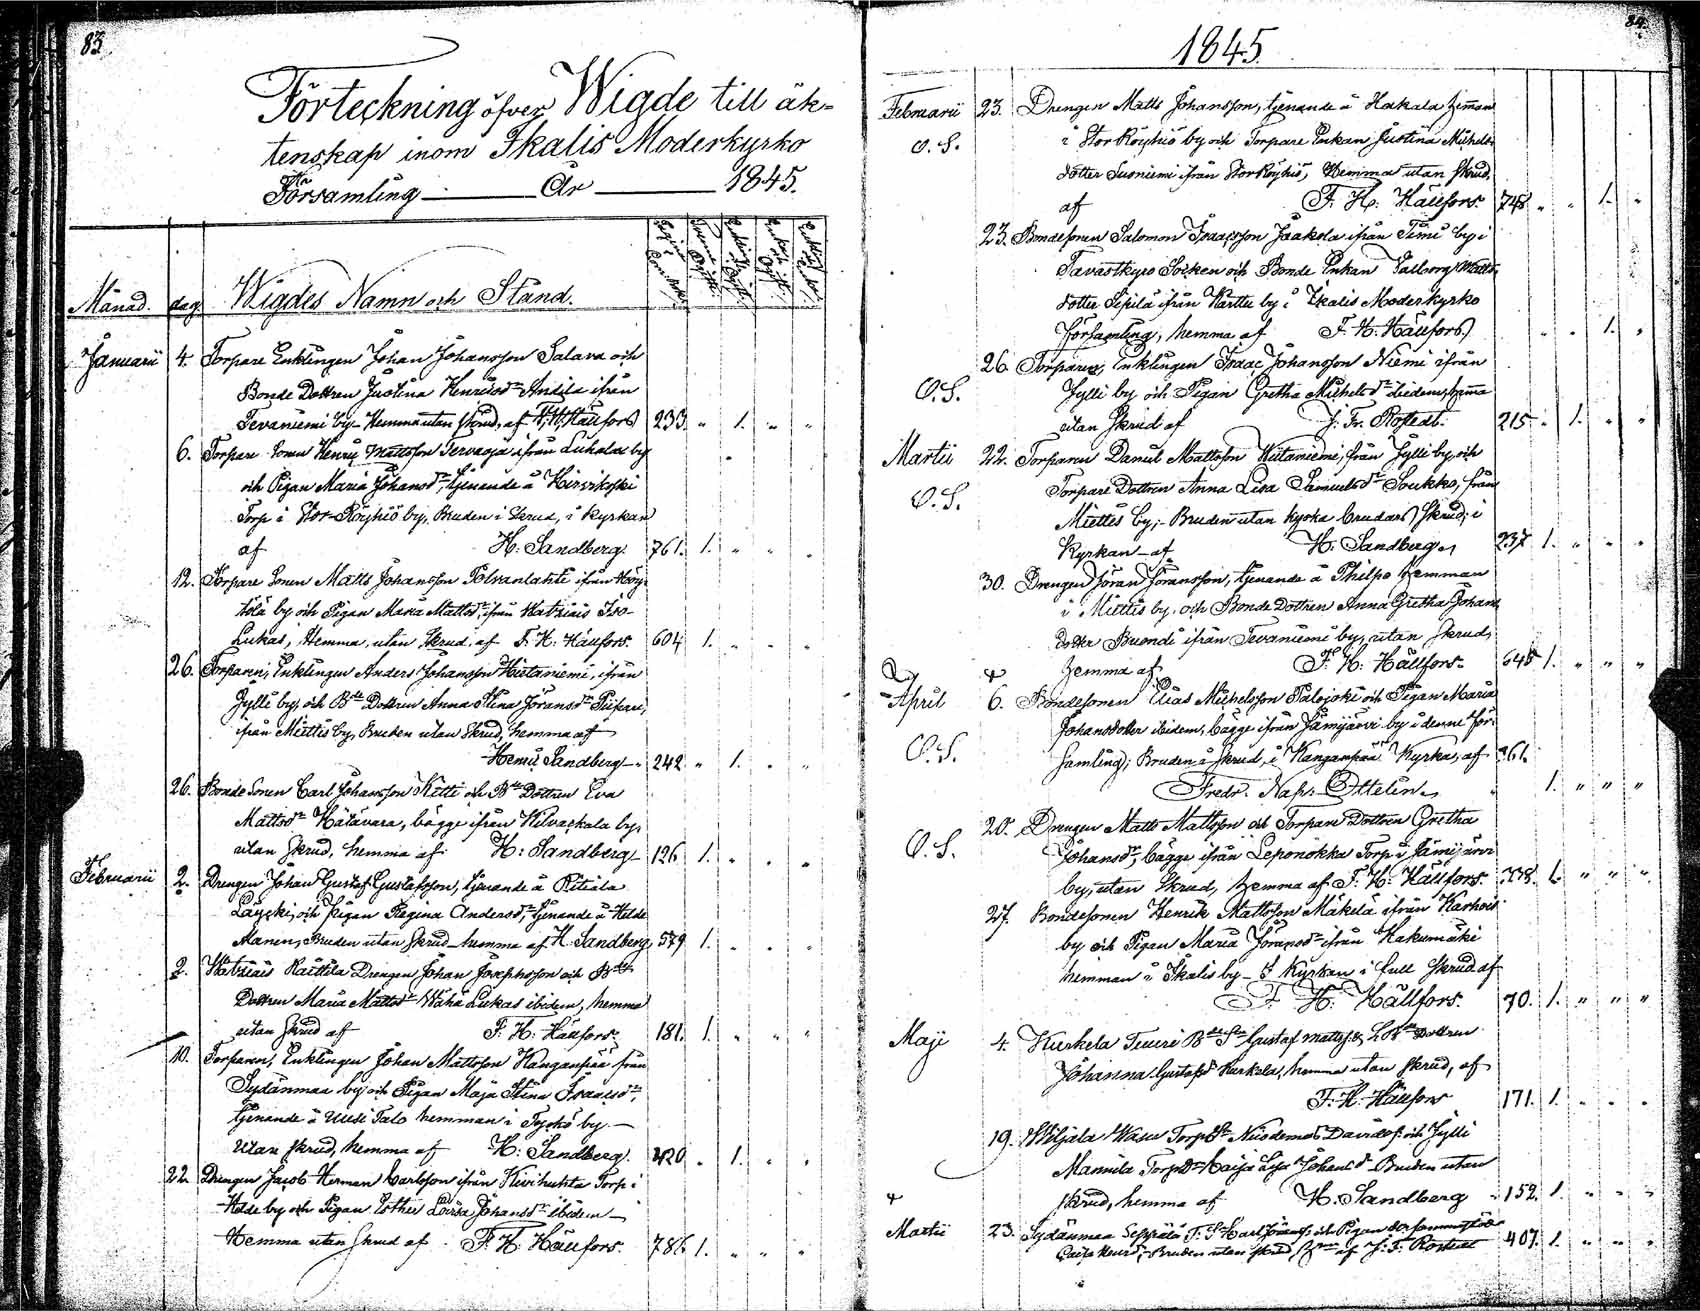 83.
Förteckning öfver Wigde till äk=
tenskap inom Ikalis Moderkyrko
Församling År 1845.
Månad. dag Wigdes Namn och Stånd.
Januarii 4. Torpare Enklingen Johan Johansson Salava och
Bonde Dottren Justina Henricsdr Andila ifrån
Tevaniemi by Hemma utan skrud, af F. H. Hällfors 233. " 1. " "
6. Torpare Sonen Henric Mattsson Tervaoja ifrån Luhalax by
och Pigan Maria Johansdr, tjenande å Hirvikoski
Torp i Stor-Röyhiö by, Bruden i Skrud, i Kyrkan
af H: Sandberg. 761. 1. " " "
12. Torpare Sonen Matts Johansson Polvanlahti ifrån
by och Pigan Maria Mattsdr, ifrån Vatziais Iso
Lukas, Hemma, utan Skrud, af F. H. Hällfors. 604 1. " " "
26. Torparen, Enklingen Anders Johansson Hiitaniemi, ifrån
Jylli by, och Bde Dottren Anna Stina Jöransdr
ifrån Miettis by, Bruden utan Skrud, hemma af
Henric Sandberg 242 " 1. " "
26. Bonde Sonen Carl Johansson Kitti och Bde Dottren Eva
Mattsdr Hätävara, bägge ifrån Vilvaskala by,
utan Skrud, hemma af H: Sandberg 126 1. " " "
Februarii 2. Drengen Johan Gustaf Gustafsson, tjenande å Ritiala
och Pigan Regina Andersdr, tjenande å Helde
Manen, Bruden utan Skrud hemma af H. Sandberg 579 1. " " "
2. Vatziais Raittila Drengen Johan Josephsson och Bde
Dottren Maria Mattsdr Wähä Lukas ibidem, hemma
utan Skrud af F. H: Hällfors. 181. 1. " " "
10. Torparen, Enklingen Johan Mattsson Kanganpää från
Sydänmaa by och Pigan Maja Stina Isaacsdr,
tjenande å Uusi Talo hemman i by.
Utan skrud, hemma af H: Sandberg. 420 " 1. " "
22. Drengen Jacob Herman Carlsson ifrån Kivihuhta Torp i
Helde by och Pigan Esther Lovisa Johansdr ibidem
Hemma utan Skrud af F. H. Hällfors. 786 1. " " "
84.
1845.
Februarii 23. Drengen Matts Johansson, tjenande å Hakala hemman
O. S. i Stor Röyhiö by och Torpare Enkan Justina Michels
dotter Susniemi ifrån Stor Röyhiö, Hemma utan Skrud,
af F. H. Hällfors. 748 " " 1. "
23. Bondesonen Salomon Isaacsson Jaakola ifrån Timi by i
Tavastkyro Socken och Bonde Enkan Valborg Matts
dotter Sipilä ifrån Vartti by i Ikalis Moderkyrko
Församling, hemma af F. H. Hällfors " " 1. "
26. Torparen, Enklingen Isaac Johansson Niemi ifrån
O. S. Jylli by och Pigan Gretha Michelsdr ibidem, hemma
utan Skrud af J. Fr. Rostedt. 215 " 1. " "
Martii 22. Torparen Daniel Mattsson Hiitaniemi, från Jylli by, och
O. S. Torpare Dottren Anna Lisa Samuelsdr Soukko, från
Miettis by, Bruden utan kyrko brudars Skrud, i
Kyrkan af H: Sandberg. 237 1. " " "
30. Drengen Jöran Jöransson, tjenande å Philpo hemman
i Miettis by, och Bonde Dottren Anna Gretha Johans
dotter Buendi ifrån Tevaniemi by, utan Skrud,
hemma af F. H: Hällfors. 645 1. " " "
April 6. Bondesonen Elias Michelsson Palojoki och Pigan Maria
Johansdotter ibidem, bägge ifrån Jämijärvi by i denne För
O. S. samling; Bruden i Skrud, i Kanganpää Kyrka, af 361.
Fredr. Nap. Ottelin. 1. " " "
20. Drengen Matts Mattsson och Torpare Dottren Gretha
O. S. Johansdr, bägge ifrån Leponokka Torp i Jämijärvi
by, utan Skrud, hemma af F. H: Hällfors. 338. 1. " " "
27. Bondesonen Henrik Mattsson Mäkelä ifrån Karhois
by och Pigan Maria Jöransdr ifrån Kakumäki
hemman i Ikalis by I Kyrkan i full Skrud af
F. H. Hällfors. 70. 1. " " "
Maji 4. Kurkela Bde Sn Gustaf Mattss: & Bde Dottren
Johanna Gustafsd Kurkela, hemma utan skrud, af
F. H. Hällfors 171. 1. " " "
19. Viljala Torp Sn Nicodemus Davidss: och Jylli
Mannila Torp Dr Caisa Lisa Johansd Bruden utan
skrud, hemma af H. Sandberg 152. 1. " " "
Martii 23. Sydänmaa Seppälä och Pigan
Bruden utan skrud af J. F. Rostedt 407. 1. " " "